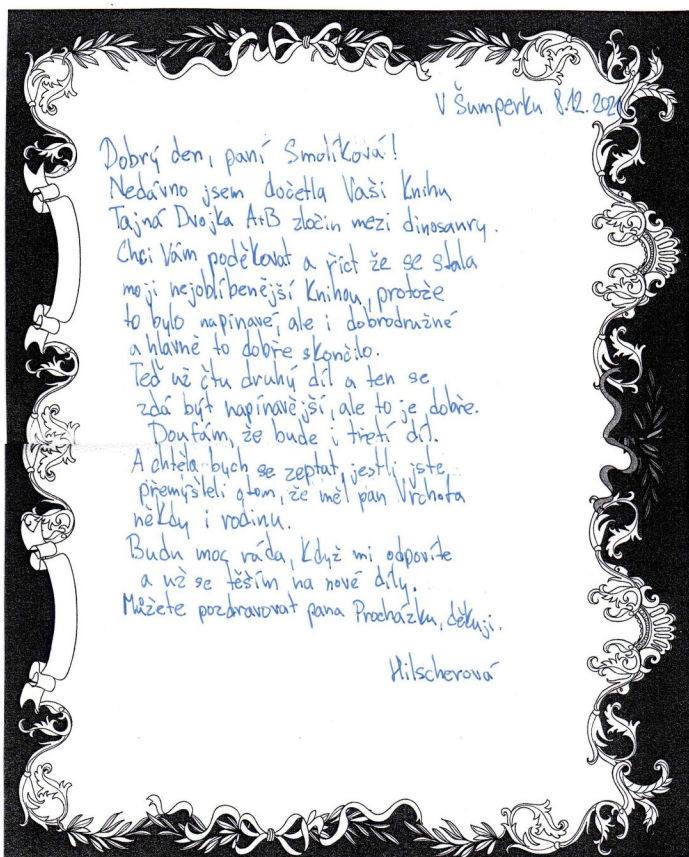 V Šumperku 8.12.2021
Dobrý den, paní Smolíková!
Nedávno jsem dočetla Vaší knihu
Tajná Dvojka A+B zločin mezi dinosaury.
Chci Vám poděkovat a říct že se stala
moji nejoblíbenější knihou, protože
to bylo napínavé, ale i dobrodružné
a hlavně to dobře skončilo.
Teď už čtu druhý díl a ten se
zdá být napínavější, ale to je dobře.
Doufám, že bude i třetí díl.
A chtěla bych se zeptat, jestli jste
přemýšleli otom, že měl pan Vrchota
někdy i rodinu.
Budu moc ráda, když mi odpovíte
a už se těším na nové díly.
Můžete pozdravovat pana Procházku, děkuji.
Hilscherová